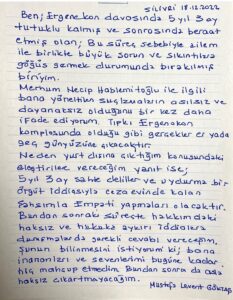 SİLİVRİ 18.12.2022
Ben; Ergenekon davasında 5 yıl 3 ay
tutuklu kalmış ve sonrasında beraat
etmiş olan; Bu süreç sebebiyle ailem
ile birlikte büyük sorun ve sıkıntılara
göğüs germek durumunda bırakılmış
biriyim.
Merhum Necip Hablemitoğlu ile ilgili
bana yöneltilen suçlamaların asılsız ve
dayanaksız olduğunu bir kez daha
ifade ediyorum. Tıpkı Ergenekon
komplosunda olduğu gibi gerçekler er yada
geç gün yüzüne çıkacaktır.
Neden yurt dışına çıktığım konusundaki
eleştirilere vereceğim yanıt ise;
5 yıl 3 ay sahte deliller ve uydurma bir
örgüt iddiasıyla cezaevinde kalan
şahsımla Empati yapmaları olacaktır.
Bundan sonraki süreçte hakkımdaki
haksız ve hukuka aykırı iddialara
duruşmalarda gerekli cevabı vereceğim,
şunun bilinmesini istiyorum ki; bana
inananları ve sevenlerimi bugüne kadar
hiç mahcup etmedim. Bundan sonra da asla
haksız çıkartmayacağım.
Mustafa Levent Göktaş